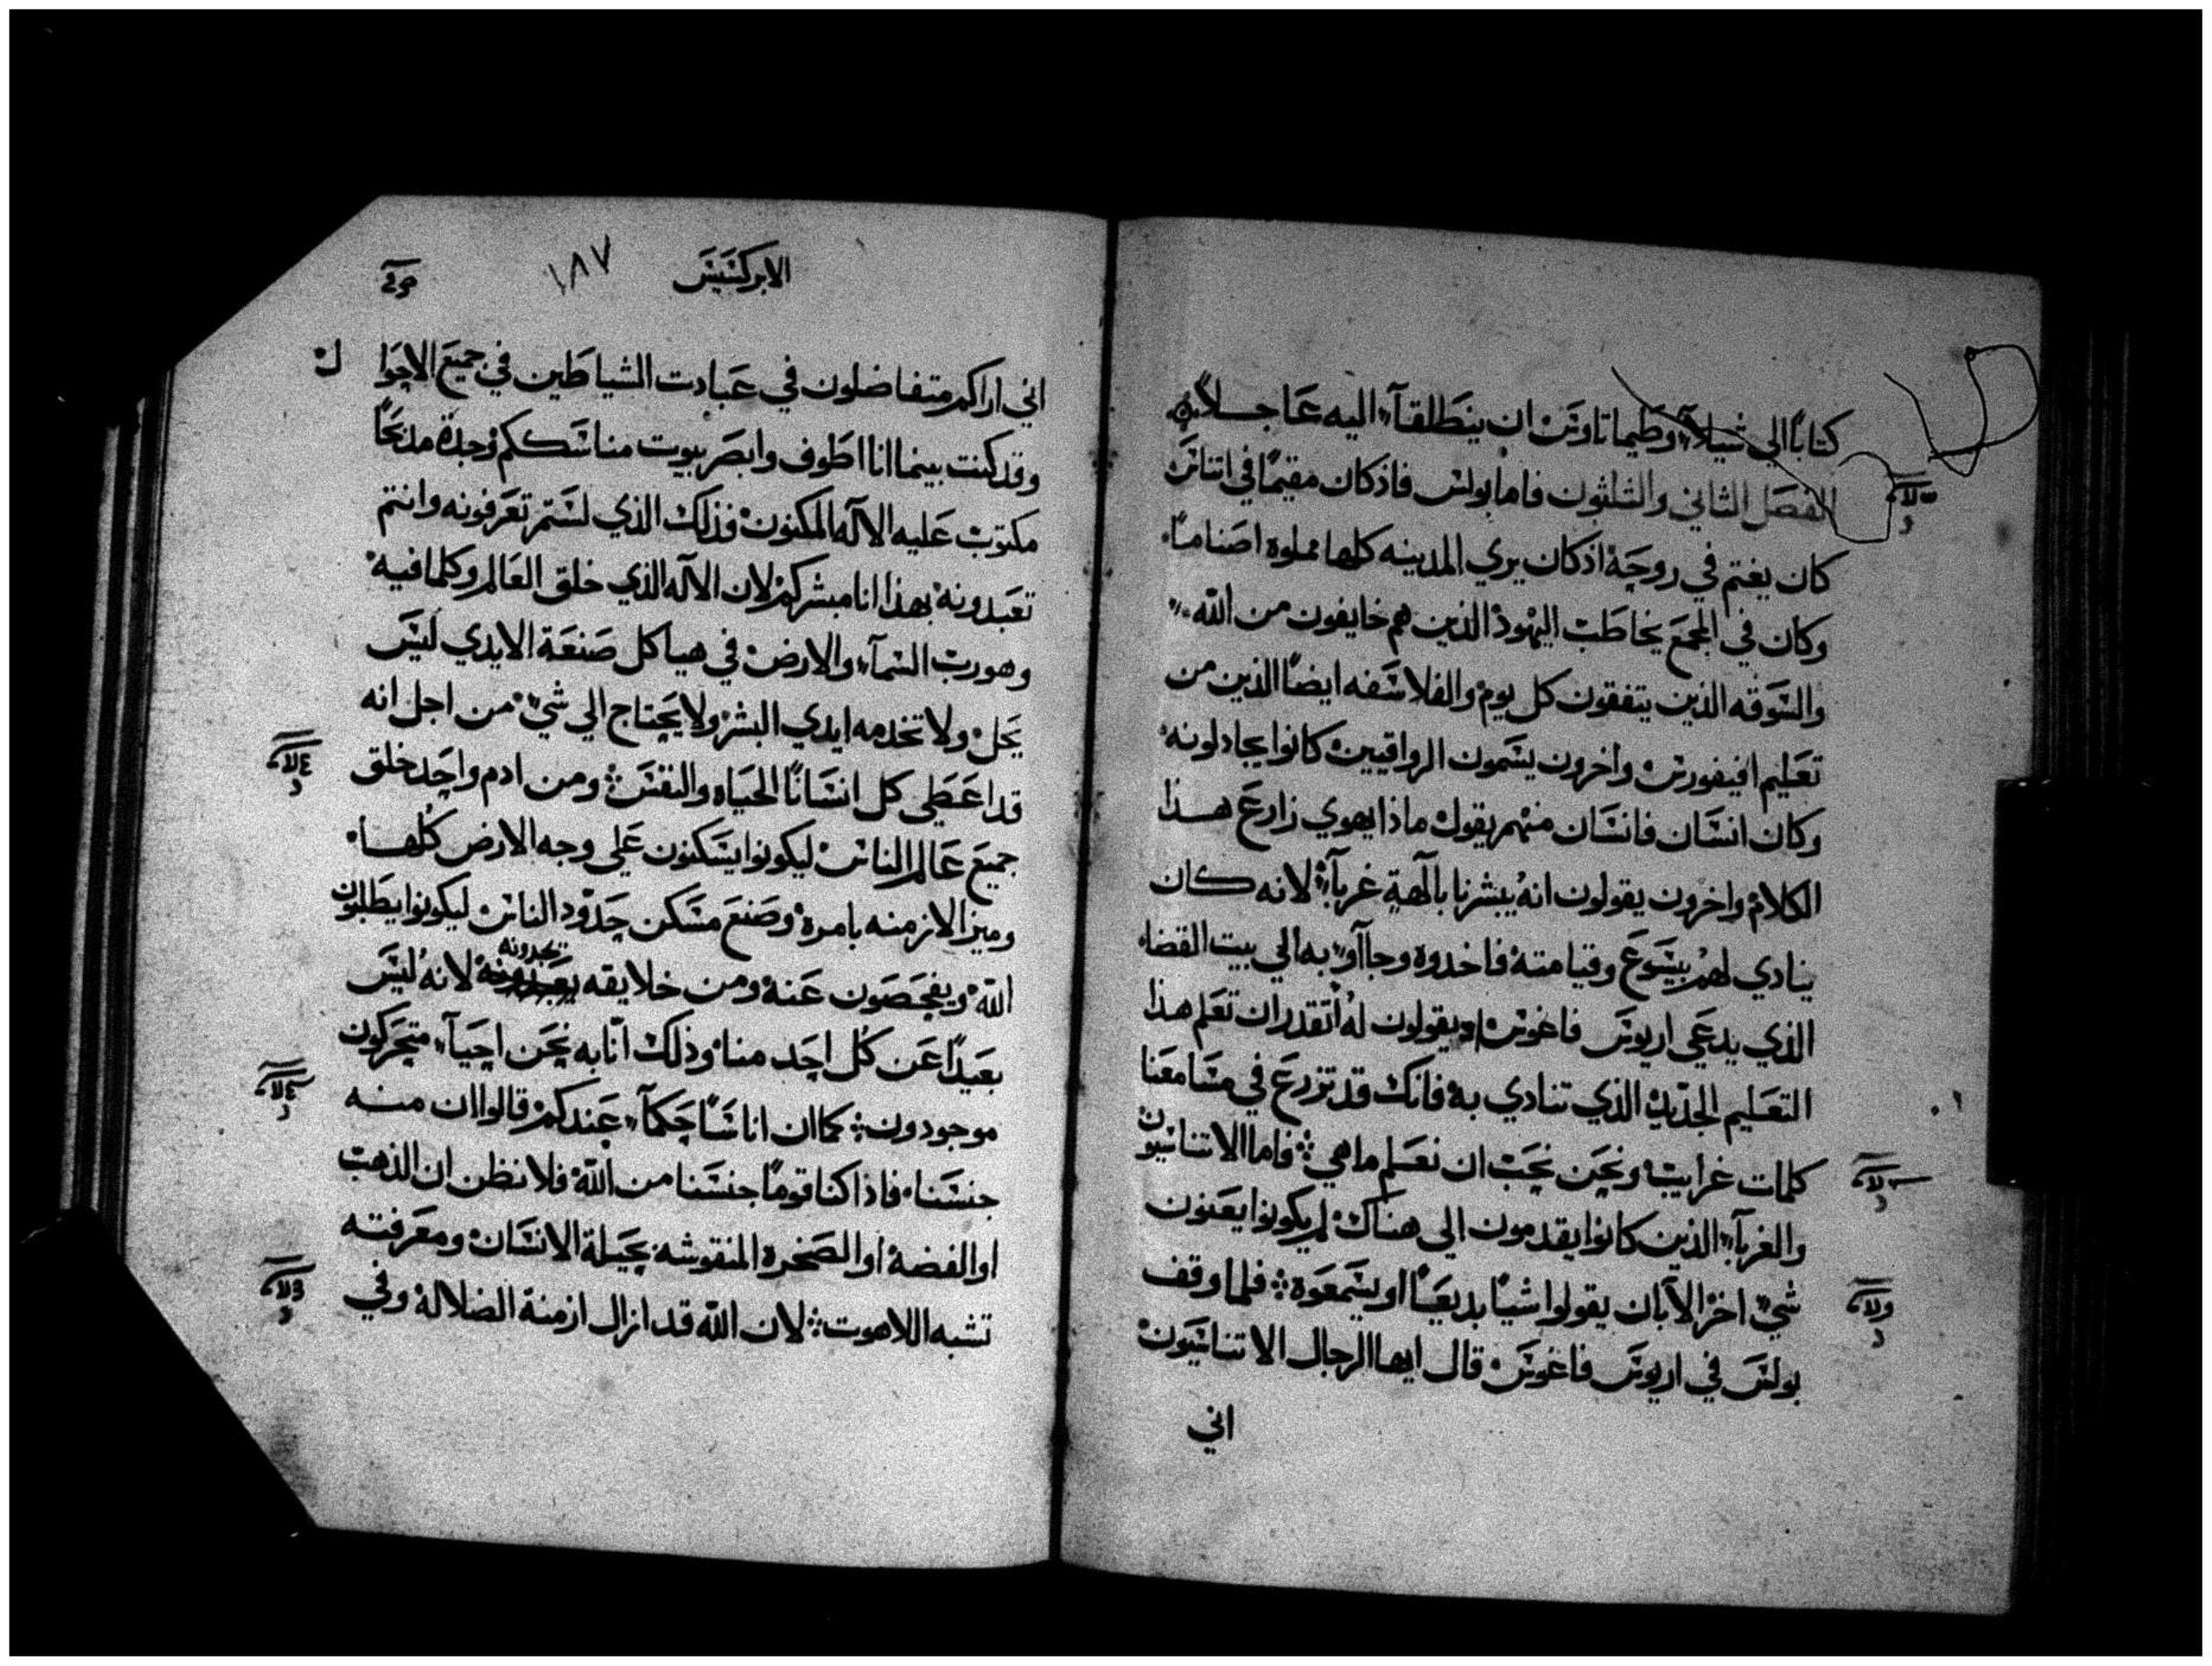 كتابًا الي شيلآء وطيماتاوس ان ينطلقآء اليه عاجلاً
الفصل الثاني والثلثون فاما بولس فاذ كان مقيمًا في اتناس
كان يغتم في روحه اذ كان يري المدينه كلها مملوه اصنامًا
وكان في المجمع يخاطب اليهود الذين هم خايفون من الله
والسوقه الذين يتفقون كل يوم والفلاسفه ايضًا الذين من
تعليم افيفورس واخرون يسمون الرواقيين كانوا يجادلونه
وكان انسان فانسان منهم يقول ماذا يهوي زارع هذا
الكلام واخرون يقولون انه يبشرنا بالهة غربآء لانه كان
ينادي لهم بيسوع وقيامته فاخدوه وجاآو به الي بيت القضاء
الذي يدعي اريوس فاغوس اذ يقولون له اتقدر ان تعلم هذا
التعليم الجديد الذي تنادي به فانك قد تزرع في مسامعنا
كلمات غرايب ونحن نحب ان نعلم ما هي فاما الاتناسيون
والغربآء الذين كانوا يقدمون الي هناك لم يكونوا يعنون
شي اخر الا بان يقولوا شيًا بديعًا او يسمعوه فلما وقف
بولس في اريوس فاغوس قال ايها الرجال الاتناسيون
اني
الابركسيس
١٨٧
اني اراكم متفاضلون في عبادت الشياطين في جميع الاحوا
ل
وقد كنت بينما انا اطوف وابصر بيوت مناسككم وجدة مدبحًا
مكتوب عليه الاله المكنون فذلك الذي لستم تعرفونه وانتم
تعبدونه بهذا انا مبشركم لان الاله الذي خلق العالم وكلما فيه
وهو رب السمآء والارض في هياكل صنعة الايدي ليس
يحل ولا تخدمه ايدي البشر ولا يحتاج الي شي من اجل انه
قد اعطي كل انسانًا الحياه والنفس ومن ادم واحد خلق
جميع عالم الناس ليكونوا يسكنون علي وجه الارض كلها
وميز الازمنه بامره وصنع مسكن حدود الناس ليكونوا يطلبون
تجدونه
الله ويفحصون عنه ومن خلايقه لانه ليس
بعيدًا عن كل احد منا وذلك انا به نحن احيآء متحركون
موجودون كما ان اناسًا حكمآء عندكم قالوا ان منه
جنسنا فاذا كنا قومًا جنسنا من الله فلا نظن ان الذهب
او الفضه او الصخره المنقوشه بحيلة الانسان ومعرفته
تشبه اللاهوت لان الله قد ازال ازمنة الضلاله وفي